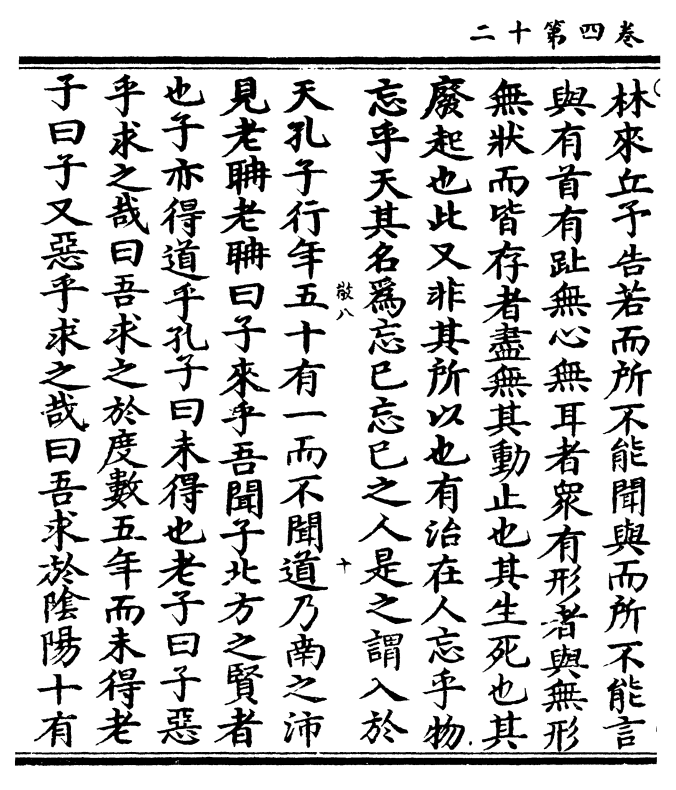 卷四第十二
林來丘予告若而所不能聞與而所不能言
與有首有趾無心無耳者衆有形者與無形
無狀而皆存者盡無其動止也其生死也其
廢起也此又非其所以也有治在人忘乎物
忘乎天其名爲忘已忘已之人是之謂入於
敬八
十
天孔子行年五十有一而不聞道乃南之沛
見老聃老聃曰子來乎吾聞子北方之賢者
也子亦得道乎孔子曰未得也老子曰子惡
乎求之哉曰吾求之於度數五年而未得老
子曰子又惡乎求之哉曰吾求於陰陽十有